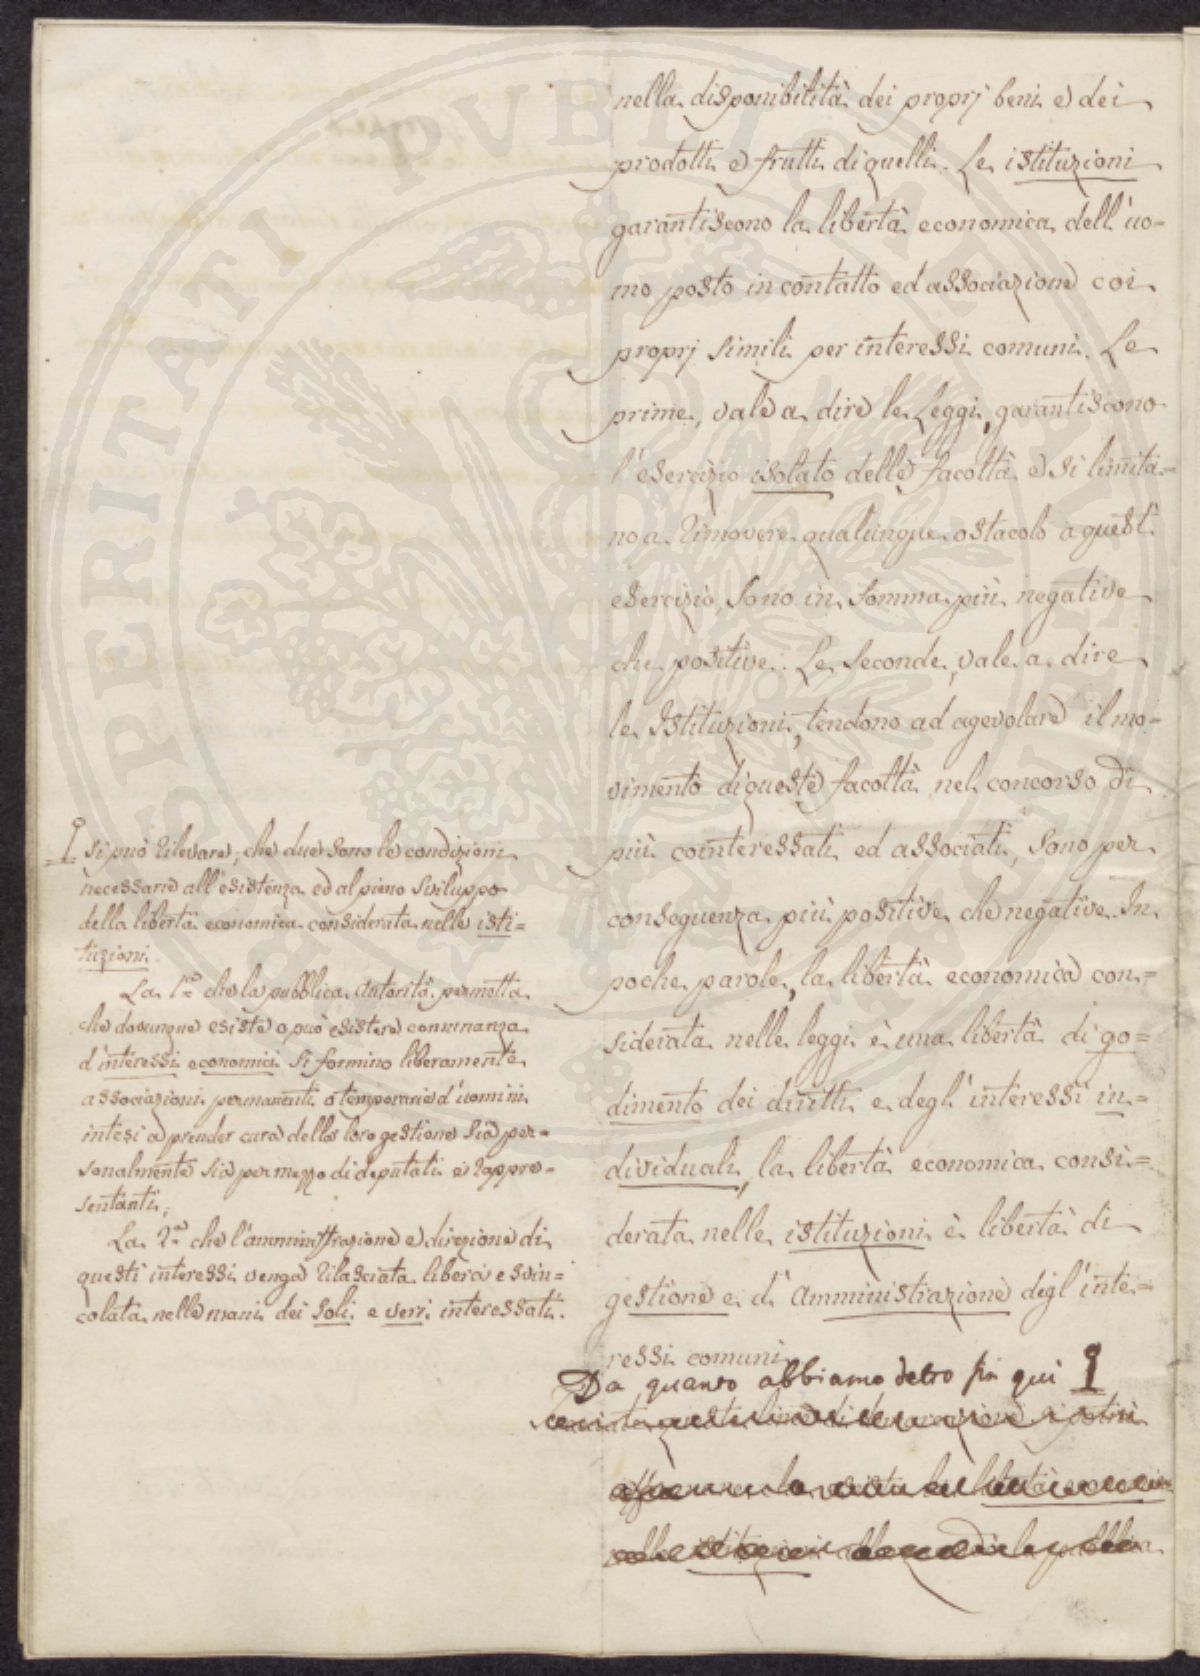 nella disponibilità dei proprj beni e dei
prodotti e frutti di quelli. Le istituzioni
garantiscono la libertà economica dell'uo-
mo posto in contatto ed associazione coi
proprj simili per interessi comuni. Le
prime, vale a dire le Leggi, garantiscono
l'esercizio isolato delle facoltà e si limita=
no a rimovere qualunque ostacolo a questi
esercizio, sono in somma più negative
che positive. Le seconde, vale a dire
le Istituzioni, tendono ad agevolare il mo-
vimento di queste facoltà nel concorso di
più cointeressati ed associati, sono per
conseguenza più positive che negative. In
poche parole, la libertà economica con=
siderata nelle leggi è una libertà di go=
dimento dei diritti e degl'interessi in=
dividuali, la libertà economica consi=
derata nelle istituzioni è libertà di
gestione e di Amministrazione degl'inte=
ressi comuni
Da quanto abbiamo detto fin qui
si può rilevare, che due sono le condizioni
necessarie all'esistenza ed al pieno sviluppo
della libertà economica considerata nelle isti=
tuzioni.
La 1.a che la pubblica autorità permetta
che dovunque esiste o può esistere comunanza
d'interessi economici si formino liberamente
associazioni permanenti o temporarie d'uomini
intesi a prender cura della loro gestione sia per=
sonalmente sia per mezzo di deputati e rappre=
sentanti;
La 2.a che l'amministrazione e direzione di
questi interessi venga rilasciata libera e svin=
colata nelle mani dei soli e veri interessati.
SPERITATI PVBLICAE